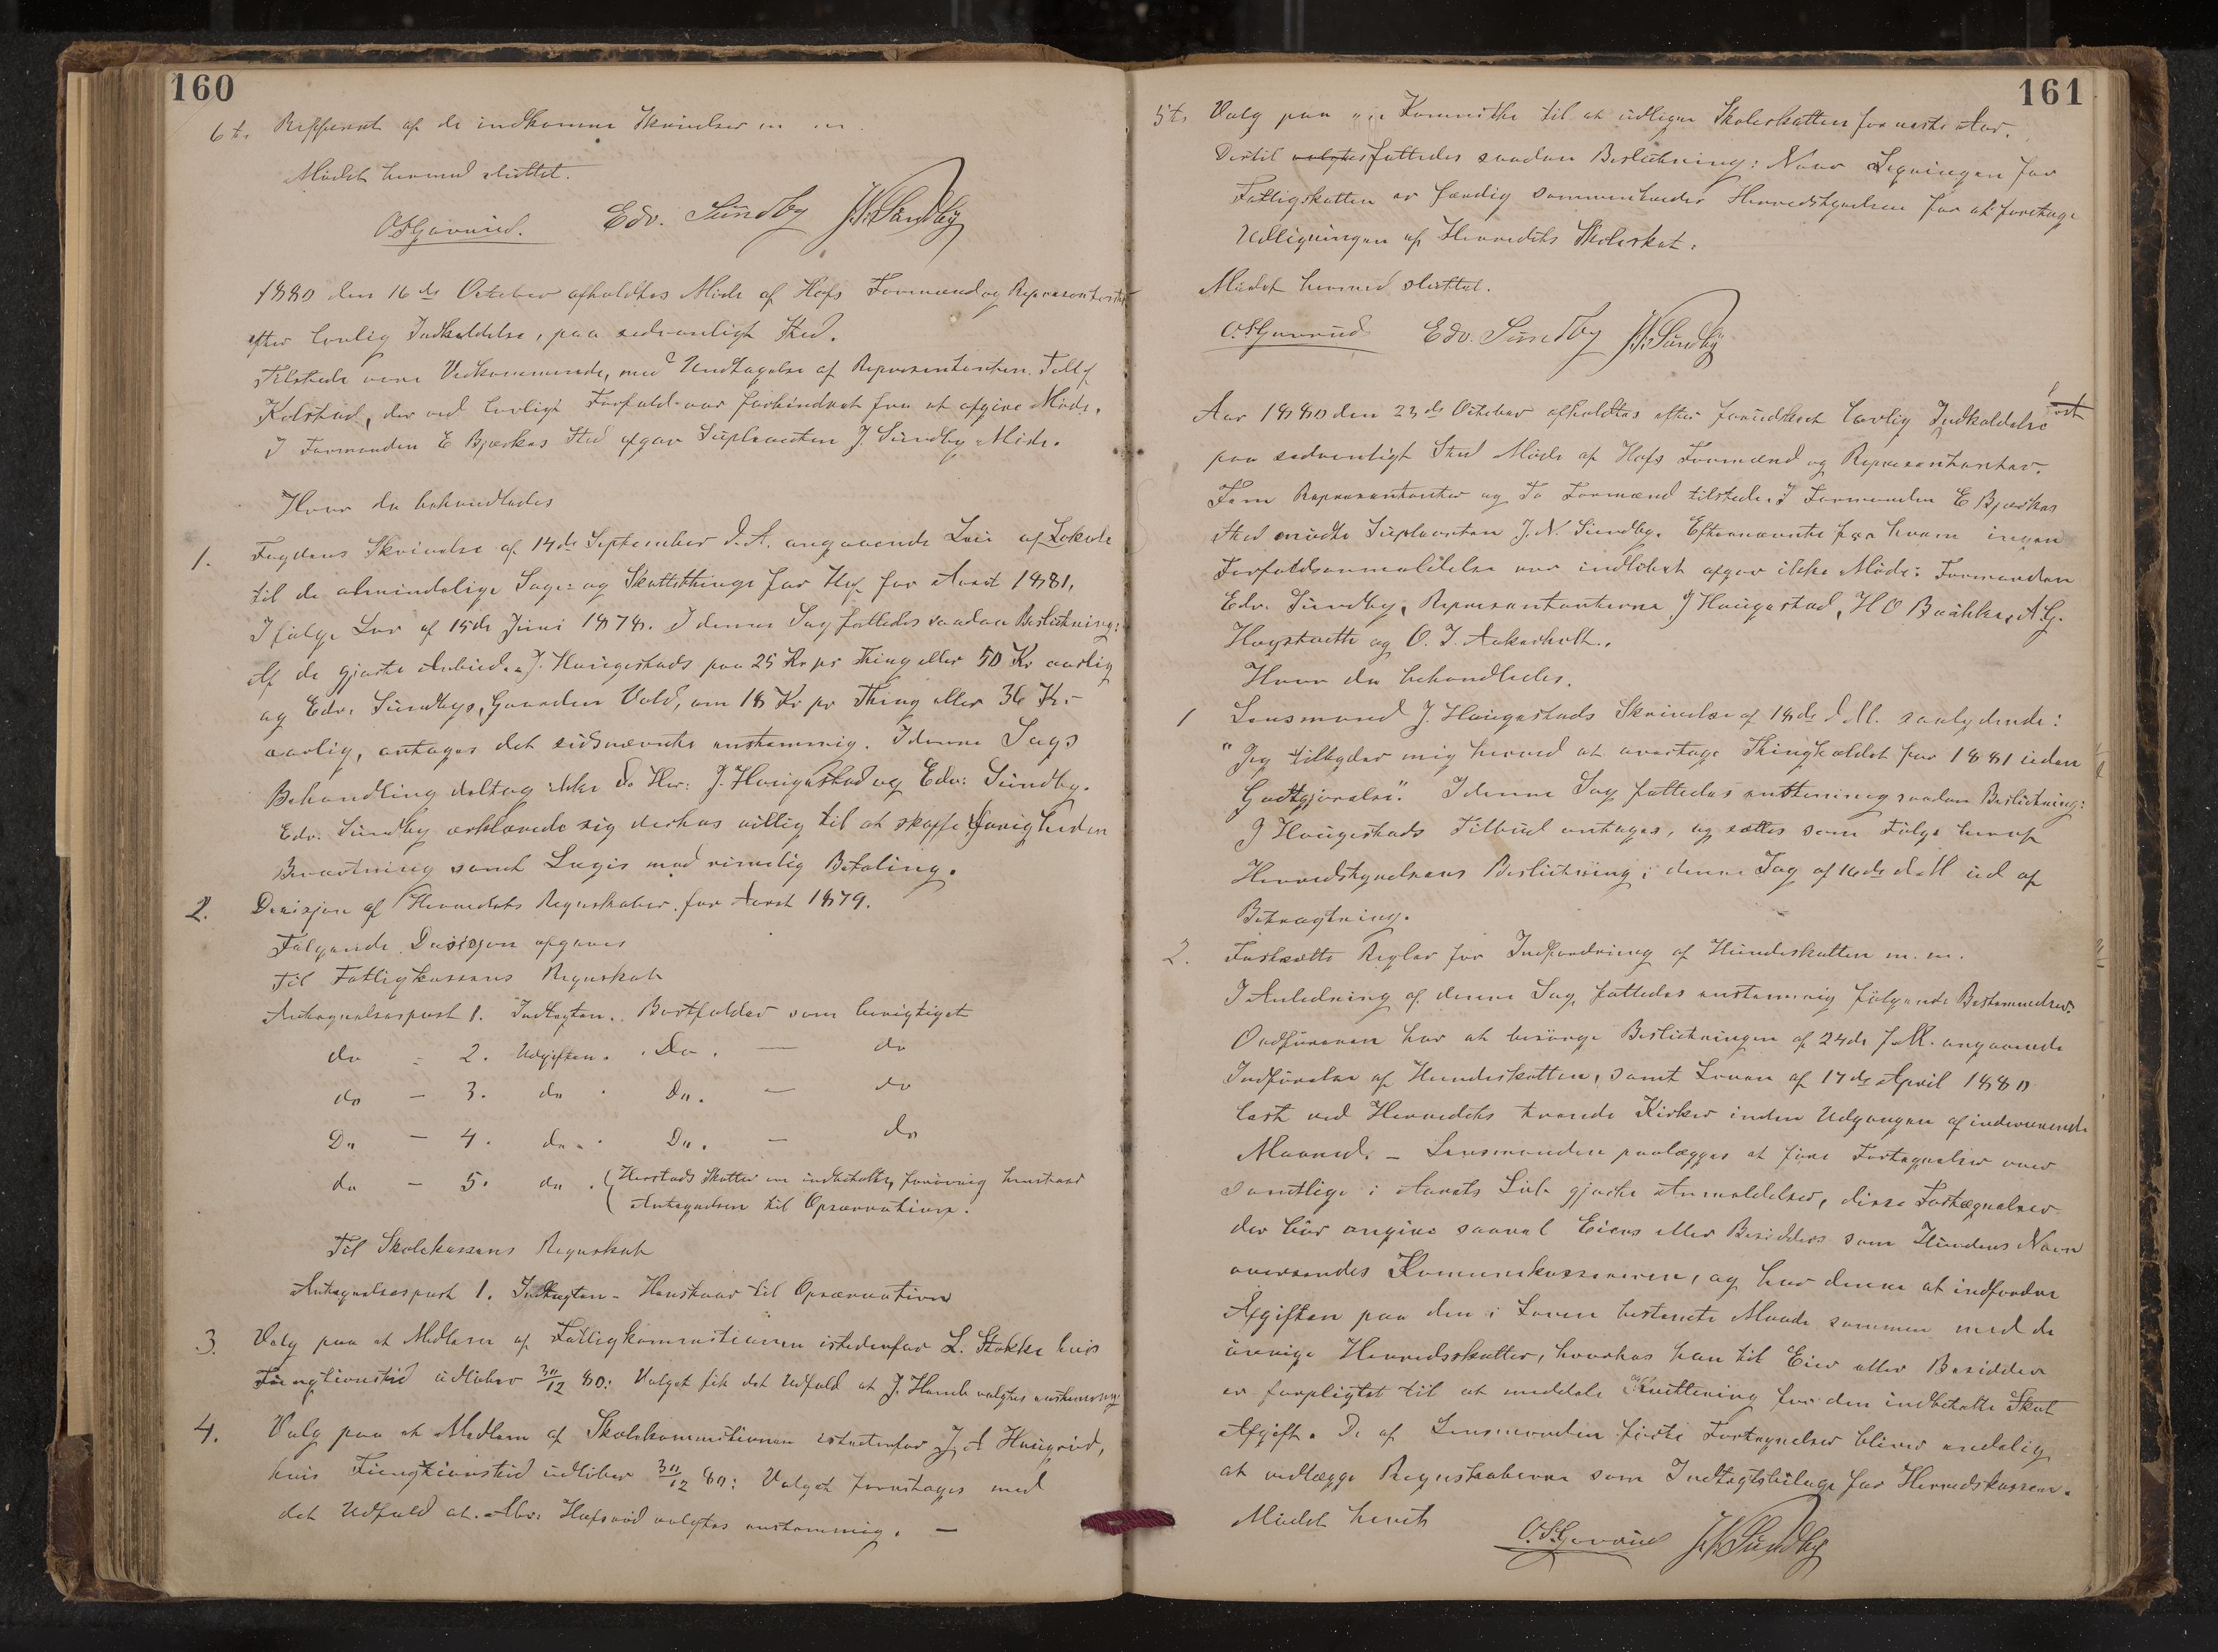 160
6te Refferat af de indkomne Skrivelser m m.
Mödet hermed sluttet.
O.S.Gavrud. Edv. Sundby J.N.Sundby
1880 den 16de October afholdtes Möde af Hofs Formænd og Repræsentanter
efter lovlig Indkaldelse, paa sedvanligt Sted.
Tilstede vare Vedkommende, med Undtagelse af Repræsentanten
Kolstad, der ved lovligt Forfald var forhindret fra at afgive Möde.
I Formanden E Bjerkes Sted afgav Supleanten J. Sundby Möde.
Hvor da behandledes
1. Fogdens Skrivelse af 14de September d. A. angaaende Leie af Lokale
til de almindelige Sage- og Skattethinge for Hof for Aaret 1881,
Ifölge Lov af 15de Juni 1878. I denne Sag fattedes saadan Beslutning:
Af de gjorte Anbud. J. Haugestads paa 25 Kr pr Thing eller 50 Kr aarlig
og Edv. Sundbys, Gaarden Vold, om 18 Kr pr Thing eller 36 Kr.
aarlig, antages det sidsnævnte enstemmig. I denne Sags
Behandling deltog ikke d'Hrr: J. Haugestad og Edv: Sundby.
Edv. Sundby erklærede sig derhos villig til at skaffe Övrigheden
Bevertning samt Logis mod rimelig Betaling.
2. Desisjon af Herredets Regnskaber for Aaret 1879.
Fölgende Desisjon afgaves
Til Fattigkassens Regnskab
Antegnelsespost 1. Indtægten. Bortfalder som berigtiget
do - 2. Udgiften. Do. — do
do — 3. do Do. — do
Do — 4. do. Do. — do
do — 5. do. Herstads Skatter er indbetalte, forövrig henstaar
Antegnelsen til Opservation.
Til Skolekassens Regnskab
Antegnelsespost 1. Indtægten - Henstaar til Opservation
3. Valg paa et Medlem af Fattigkommisionen istedenfor L. Stokke hvis
Fungtionstid udlöber 30/12 80: Valget fik det Udfald at J. Hamb valgtes enstemmig
4. Valg paa et Medlem af Skolekommisionen istedenfor J. A Haugrud,
hvis Fungtionstid udlöber 30/12 80: Valget foretages med
det Udfald at. Abr. Hafsrød valgtes enstemmig. —
161
5te Valg paa en Kommithe til at udligne Skoleskatten for næste Aar.
Dertil valgtes fattedes saadan Beslutning: Naar Ligningen for
Fattigskatten er færdig sammentræder Herredstyrelsen for at foretage
Udligningen af Herredets Skoleskat.
Mödet hermed sluttet.
O.S.Gavrud Edv. Sundby J.N.Sundby
Aar 1880 den 23de October afholdtes efter forudskeet lovlig Indkaldelse
paa sedvanligt Sted Möde af Hofs Formænd og Repræsentanter.
Fem Repræsentanter og To Formænd tilstede. I Formanden E Bjerkes
Sted mödte Supleanten J. N. Sundby. Efternævnte fra hvem ingen
Forfaldsanmeldelse var indlöbet afgav ikke Möde: Formanden
Edv. Sundby, Repræsentanterne J Haugestad, H O Bakke, A G.
Hogstvedt og O. J. Askerholt.
Hvor da behandledes.
1 Lensmand J. Haugestads Skrivelse af 18de d. M. saalydende:
"Jeg tilbyder mig herved at overtage Thingholdet for 1881 uden
Godtgjörelse." I denne Sag fattedes enstemmig saadan Beslutning:
J Haugestads Tilbud antages, og sættes som Fölge heraf
Herredstyrelsens Beslutning i denne Sag af 16de d. M ud af
Betragtning.
2. Fastsætte Regler for Indfordring af Hundeskatten m. m.
I Anledning af denne Sag, fattedes enstemmig fölgende Bestemmelser:
Ordföreren har at besörge Beslutningen af 24de f. M. angaaende
Indförelse af Hundeskatten, samt Loven af 17de April 1880
læst ved Herredets tvende Kirker inden Udgangen af indeværende
Maaned. — Lensmanden paalægges at före Fortegnelser over
samtlige i Aarets Löb gjorte Anmeldelser, disse Fortegnelser
der bör angive saavel Eiers eller Besidders som Hundens Navn
oversendes Kommunekassereren, og har denne at indfordre
Afgiften paa den i Loven bestemte Maade sammen med de
övrige Herredsskatter, hvorhos han til Eier eller Besidder
er forpligtet til at meddele Kvittering for den indbetalte Skat
Afgift. De af Lensmanden förte Fortegnelser bliver endelig
at vedlægge Regnskaberne som Indtægtsbilage for Herredskassen.
Mödet hævet
O.S.Gavrud J.N.Sundby